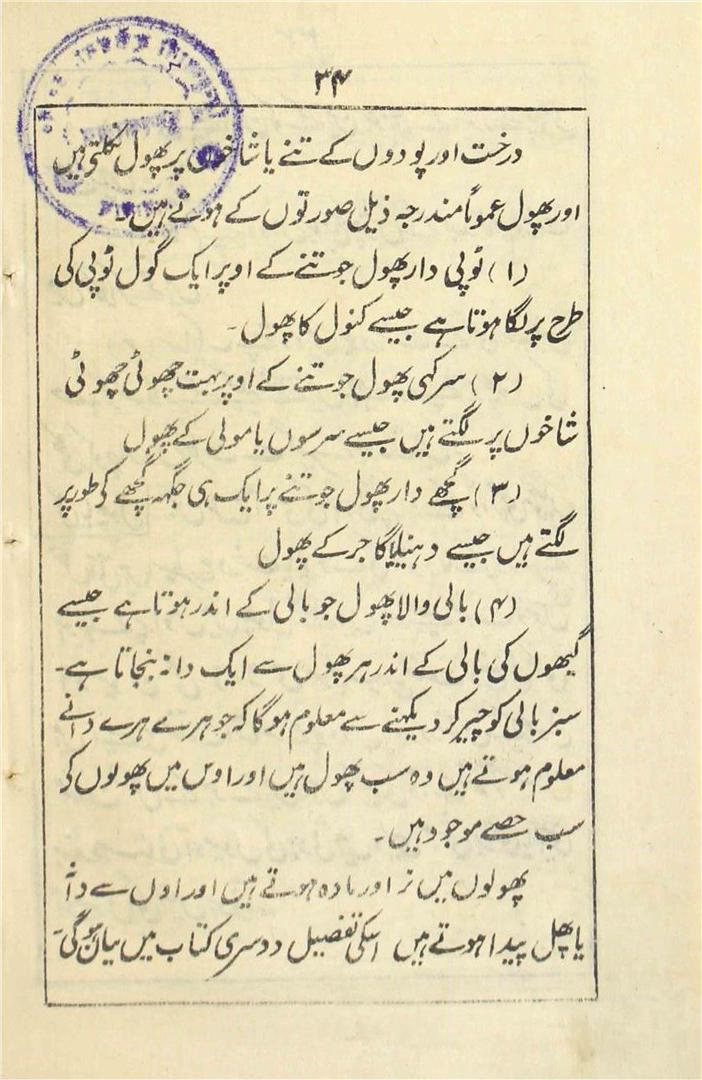 ۳۴
درخت اور پودوں کے تنے یا شاخوں پر پھول نکلتی ہیں
اور پھول عموماً مندرجہ ذیل صورتوں کے ہوتے ہیں۔
(۱) ٹوپی دار پھول جو تنے کے اوپر ایک گول ٹوپی کی
طرح پر لگا ہوتا ہے جیسے کنول کا پھول۔
(۲) سرکہی پھول جو تنے کے اوپر بہت چھوٹی چھوٹی
شاخوں پر لگتے ہیں جیسے سرسوں یا مولی کے پھول
(۳) گچھے دار پھول جو تنے پر ایک ہی جگہہ گچھے کے طور پر
لگتے ہیں جیسے دہنیا یا گاجر کے پھول
(۴) بالی والا پھول جو بالی کے اندر ہوتا ہے جیسے
گیھوں کی بالی کے اندر ہر پھول سے ایک دانہ بنجاتا ہے۔
سبز بالی کو چیر کر دیکہنے سے معلوم ہوگا کہ جو ہرے ہرے دانے
معلوم ہوتے ہیں وہ سب پھول ہیں اور اوس میں پھولوں کی
سب حصے موجود ہیں۔
پھولوں میں نر اور مادہ ہوتے ہیں اور اون سے دانہ
یا پھل پیدا ہوتے ہیں اسکی تفصیل دوسری کتاب میں بیان ہوگی۔